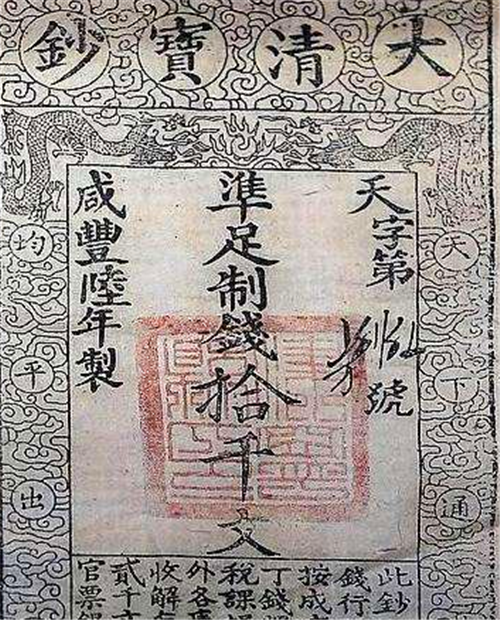 大清寶鈔
天下通
天字第
號
準足制錢拾千文
咸豐陸年製
均平出
此鈔
錢行
按成
丁錢
稅課
外各
收解
貳千文
官票銀